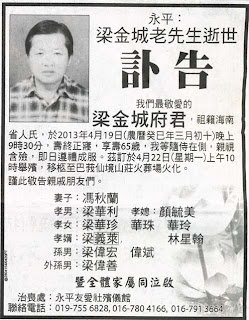 永平：
梁金城老先生逝世
訃告
我們最敬愛的
梁金城府君，祖籍海南
省人氏，於2013年4月19日(農曆癸巳年三月初十)晚上
9時30分，壽終正寢，享壽65歲，我等隨侍在側，親視
含殮，即日遵禮成服。茲訂於4月22日(星期一)上午10
時舉殯，移柩至巴莪仙境山莊火葬場火化。
謹此敬告親戚朋友們。
妻子：馮秋蘭
孝男：梁華利　孝媳：顏毓美
孝女：梁華珍　華珠　華玲
孝婿：梁義萊　林星翰
孫男：梁偉宏　偉斌
外孫男：梁偉善
暨全體家屬同泣啟
治喪處：永平友愛社殯儀館
聯絡電話：019-755 6828, 016-780 4166, 016-791 3664